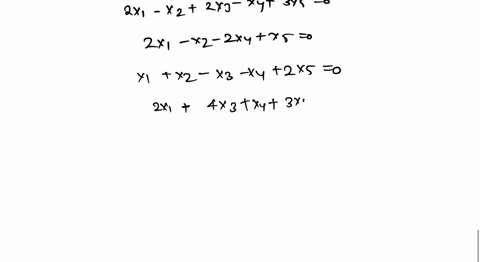 2x1 - x2 + 2x3 - x4 + 3x5 = 0
2x1 - x2 - 2x4 + x5 = 0
x1 + x2 - x3 - x4 + 2x5 = 0
2x1 + 4x3 + x4 + 3x